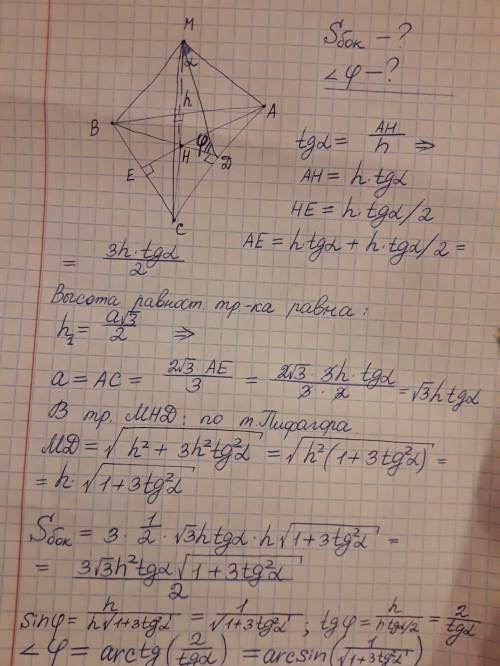 M
α
h
B
A
φ
H
D
E
C
Sбок – ?
∠φ – ?
tgα = AH/h ⇒
AH = h·tgα
HE = h·tgα/2
AE = htgα + h·tgα/2 =
= 3h·tgα/2
Высота равност. тр.-ка равна:
h₁ = a√3/2 ⇒
a = AC = 2√3·AE/3 = 2√3·3h·tgα/3·2 = √3htgα
В тр. МНД: по т. Пифагора
МД = √(h² + 3h²tg²α) = √(h²(1+3tg²α)) =
= h·√(1+3tg²α)
Sбок = 3·1/2·√3htgα·h√(1+3tg²α) =
= 3√3h²tgα√(1+3tg²α)/2
sinφ = h/h√(1+3tg²α) = 1/√(1+3tg²α) ; tgφ = h/htgα/2 = 2/tgα
∠φ = arctg(2/tgα) = arcsin(1/√(1+3tg²α))